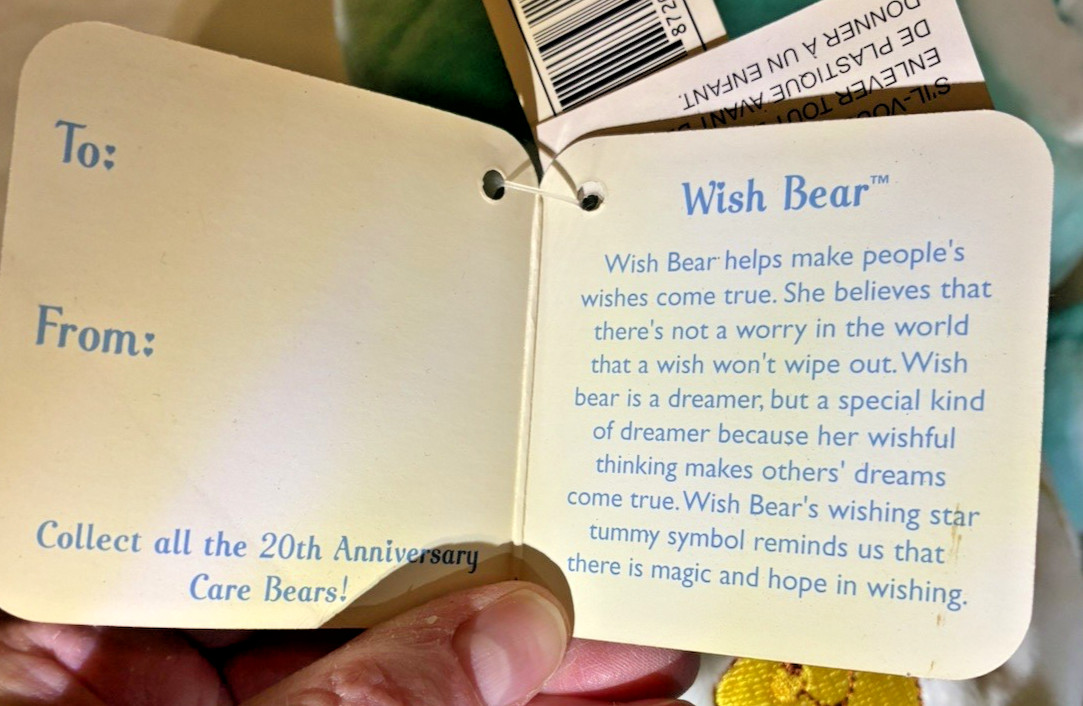 To:
From:
Collect all the 20th Anniversary
Care Bears!
Wish Bear™
Wish Bear helps make people's
wishes come true. She believes that
there's not a worry in the world
that a wish won't wipe out. Wish
bear is a dreamer, but a special kind
of dreamer because her wishful
thinking makes others' dreams
come true. Wish Bear's wishing star
tummy symbol reminds us that
there is magic and hope in wishing.
872
S'IL-VOU
ENLEVER TOUT
DE PLASTIQUE AVANT
DONNER À UN ENFANT.